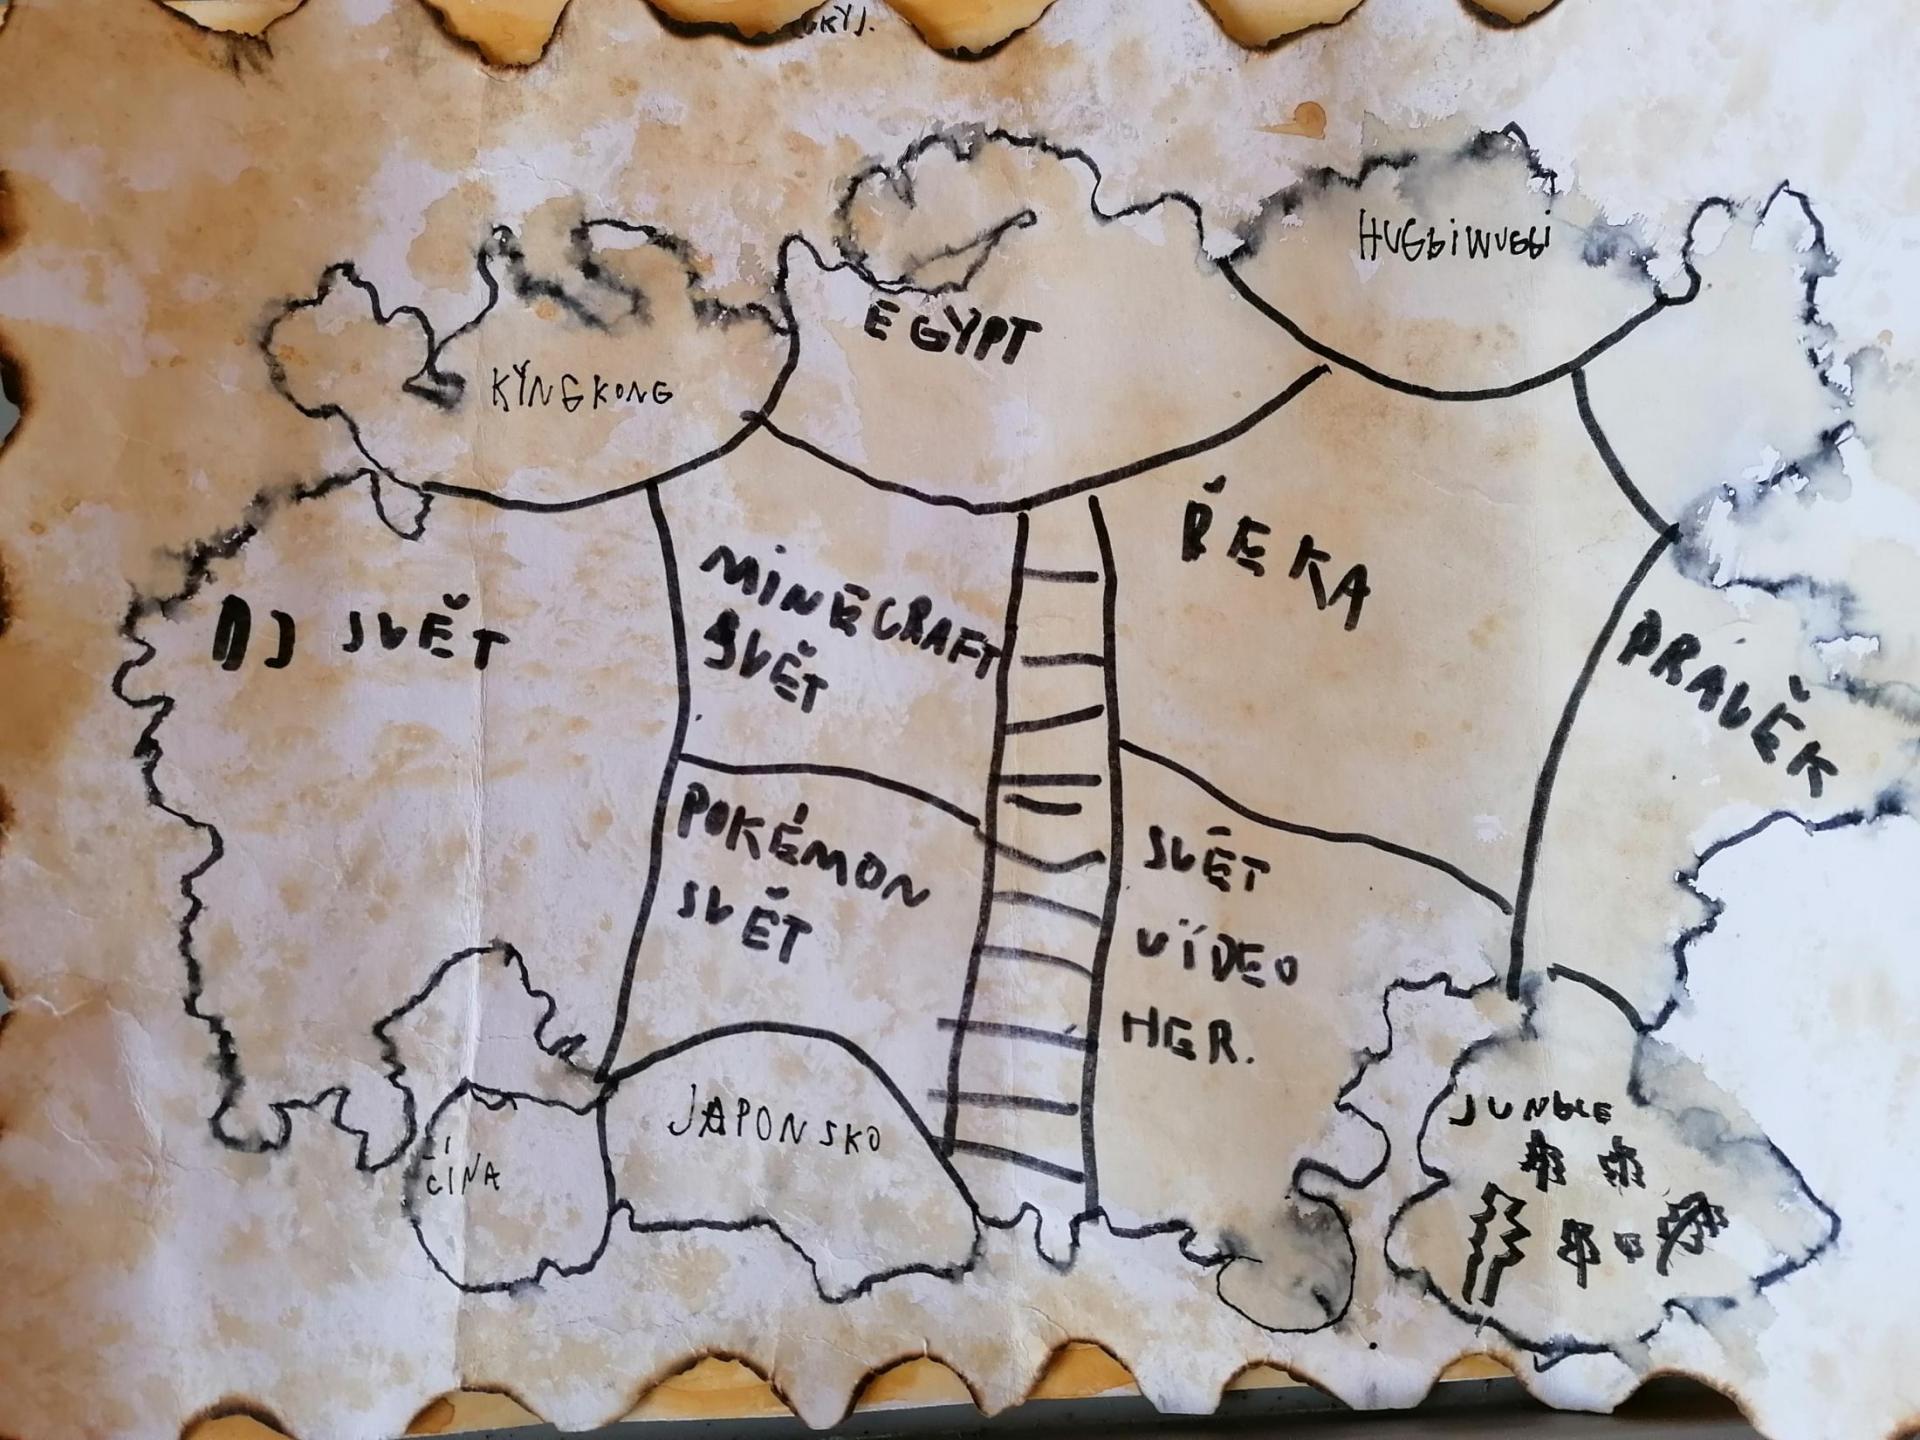 KÝNGKONG
EGYPT
HUGGIWUGGI
DJ SVĚT
MINECRAFT
SVĚT
ŘEKA
PRAVĚK
POKÉMON
SVĚT
SVĚT
VÍDEO
HER.
ČÍNA
JAPONSKO
JUNGLE